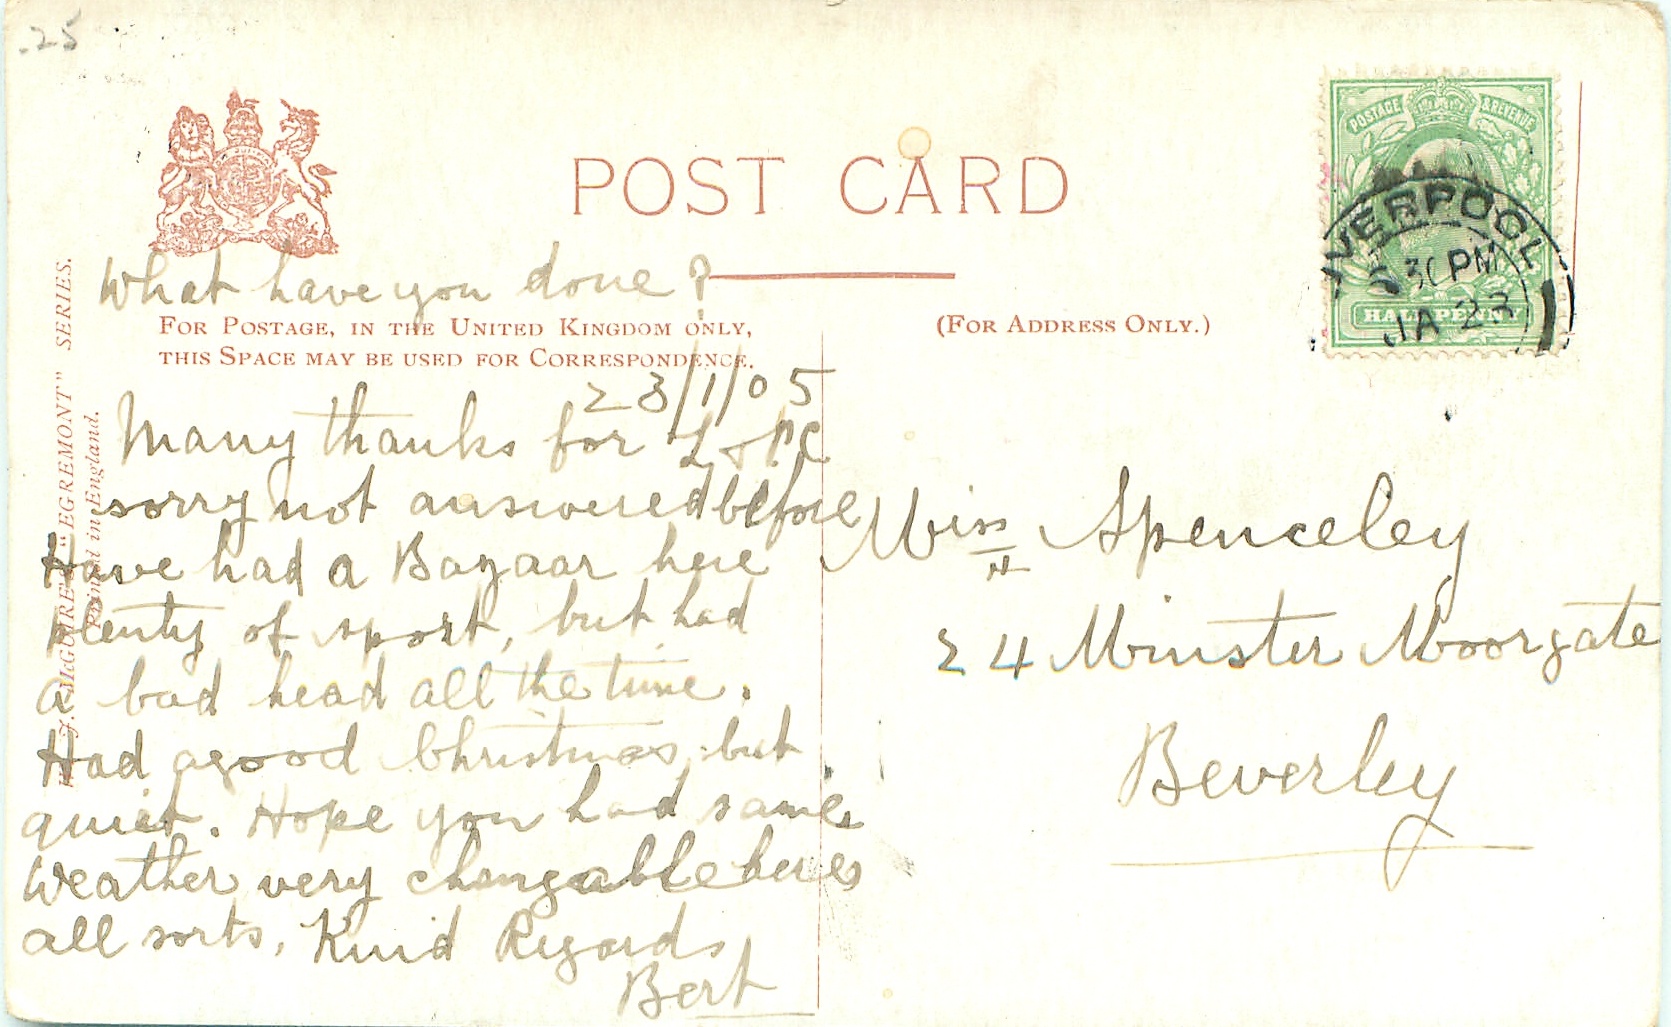 .25
POST CARD
What have you done?
FOR POSTAGE, IN THE UNITED KINGDOM ONLY,
THIS SPACE MAY BE USED FOR CORRESPONDENCE.
(FOR ADDRESS ONLY.)
POSTAGE & REVENUE
HALFPENNY
LIVERPOOL
30 PM
JA 23
"EGREMONT" SERIES.
Printed in England.
23/1/05
Many thanks for L & PC
sorry not answered before
Have had a Bazaar here
plenty of sport, but had
a bad head all the time.
Had a good Christmas, but
quiet. Hope you had same,
Weather very changable here
all sorts, Kind Regards
Bert
Miss Spenceley
24 Minster Moorgate
Beverley